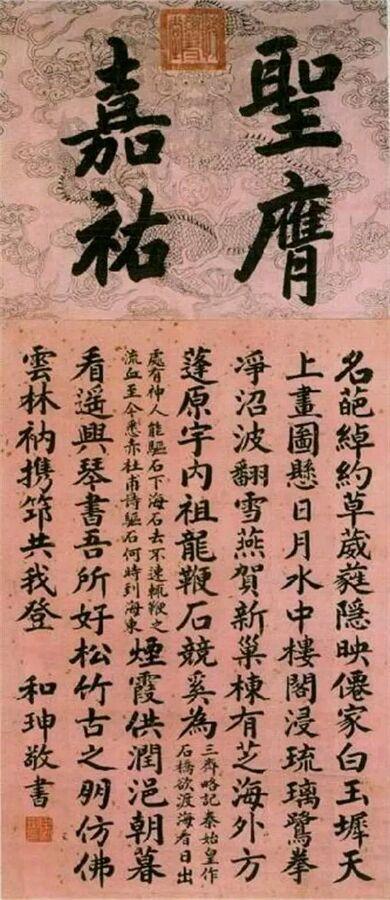 聖膺
嘉祐
名葩綽約草葳蕤隱映僊家白玉墀天
上畫圖懸日月水中樓閣浸琉璃鷺拳
凈沼波翻雪燕賀新巢棟有芝海外方
蓬原宇内祖龍鞭石競奚為
三齊略記秦始皇作
石橋欲渡海看日出
處有神人能驅石下海石去不速輒鞭之
流血至今悉赤杜甫詩驅石何時到海東
煙霞供潤浥朝暮
看遥興琴書吾所好松竹古之朋仿佛
雲林衲携筇共我登
和珅敬書